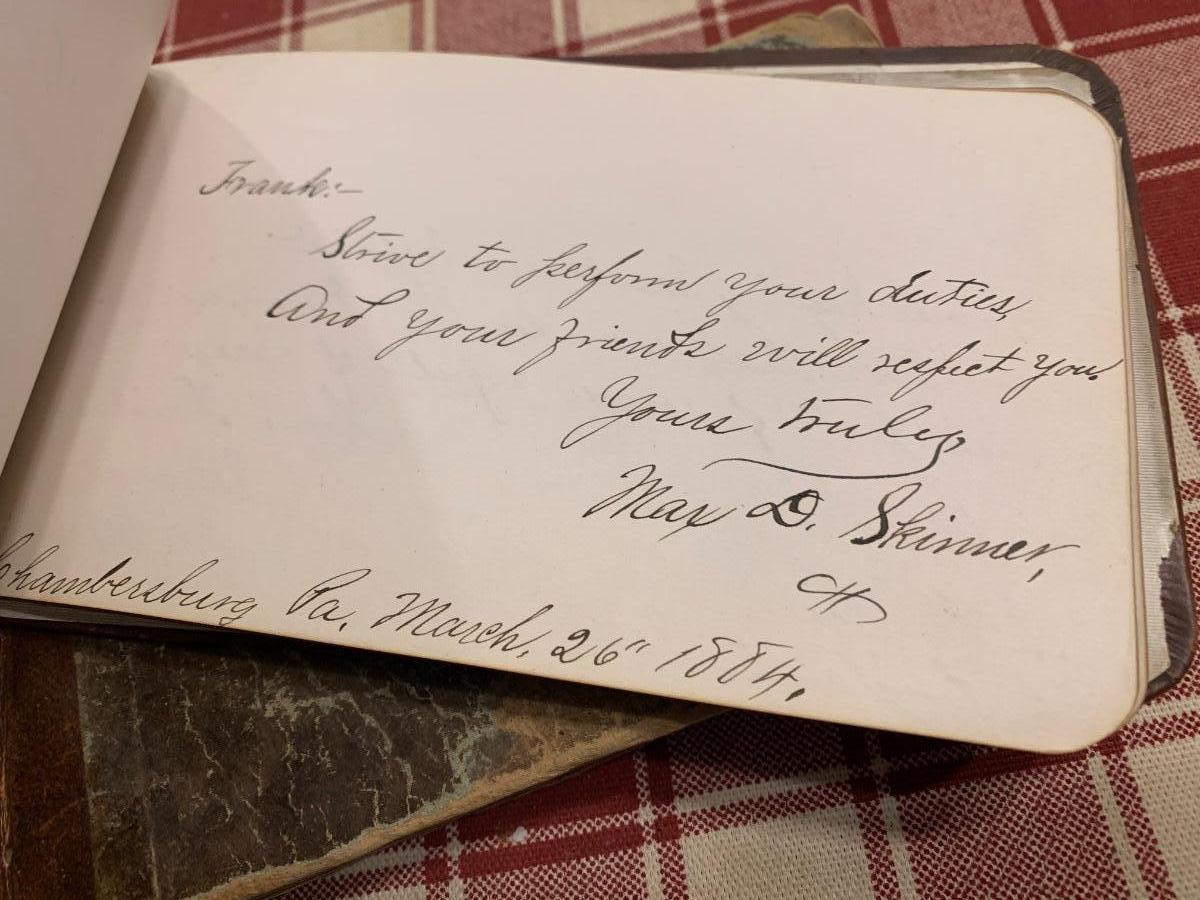 Frank:—
Strive to perform your duties,
And your friends will respect you.
Yours truly
Max D. Skinner,
Chambersburg Pa. March, 26" 1884.